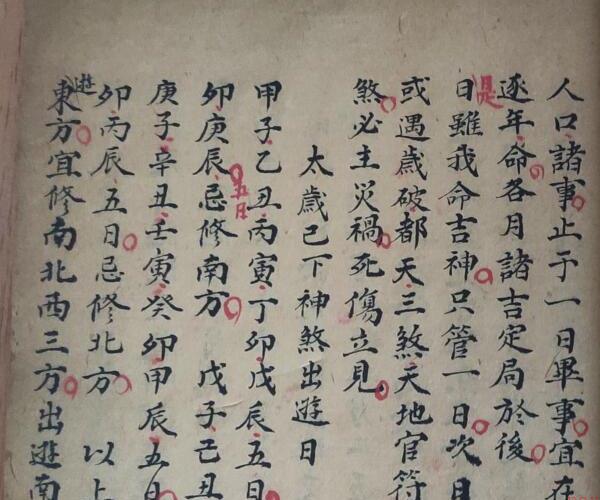 人口諸事止于一日畢事宜在
逐年命各月諸吉定局於後
是日雖我命吉神只管一日次日
或遇歲破都天三煞天地官符
煞必主災禍死傷立見
太歲己下神煞出遊日
甲子乙丑丙寅丁卯戊辰五日
卯庚辰五日忌修南方 戊子己丑
庚子辛丑壬寅癸卯甲辰五日
卯丙辰五日忌修北方 以上
遊東方宜修南北西三方出遊南